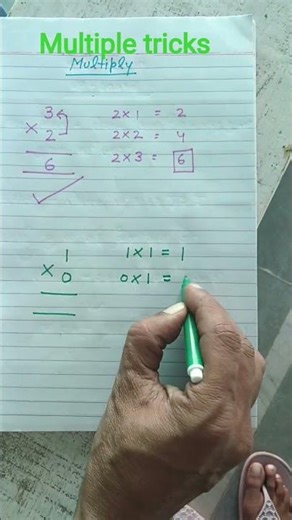 Multiple tricks
Multiply
3
× 2
6
2×1 = 2
2×2 = 4
2×3 = 6
1
× 0
1×1 = 1
0×1 =